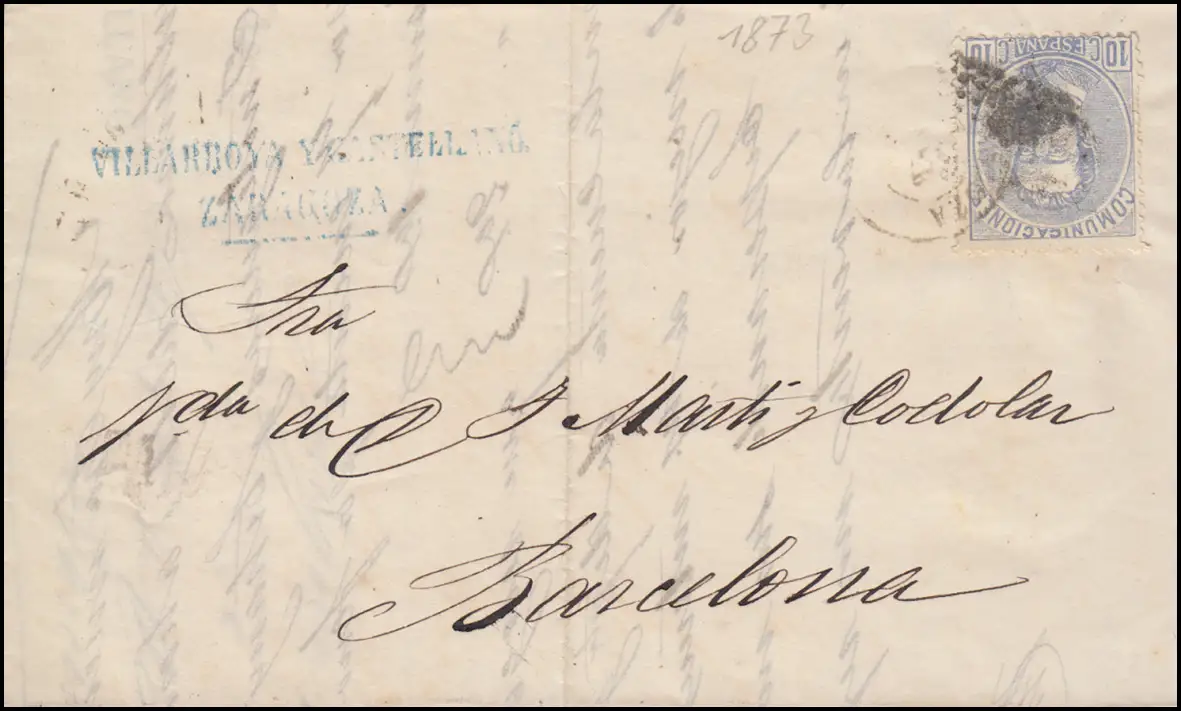 1873
VILLARROYA Y CASTELLANO.
ZARAGOZA.
10 C. ESPAÑA. C. 10
COMUNICACIONES
Sra
Vda de D J Marti y Codolar
Barcelona